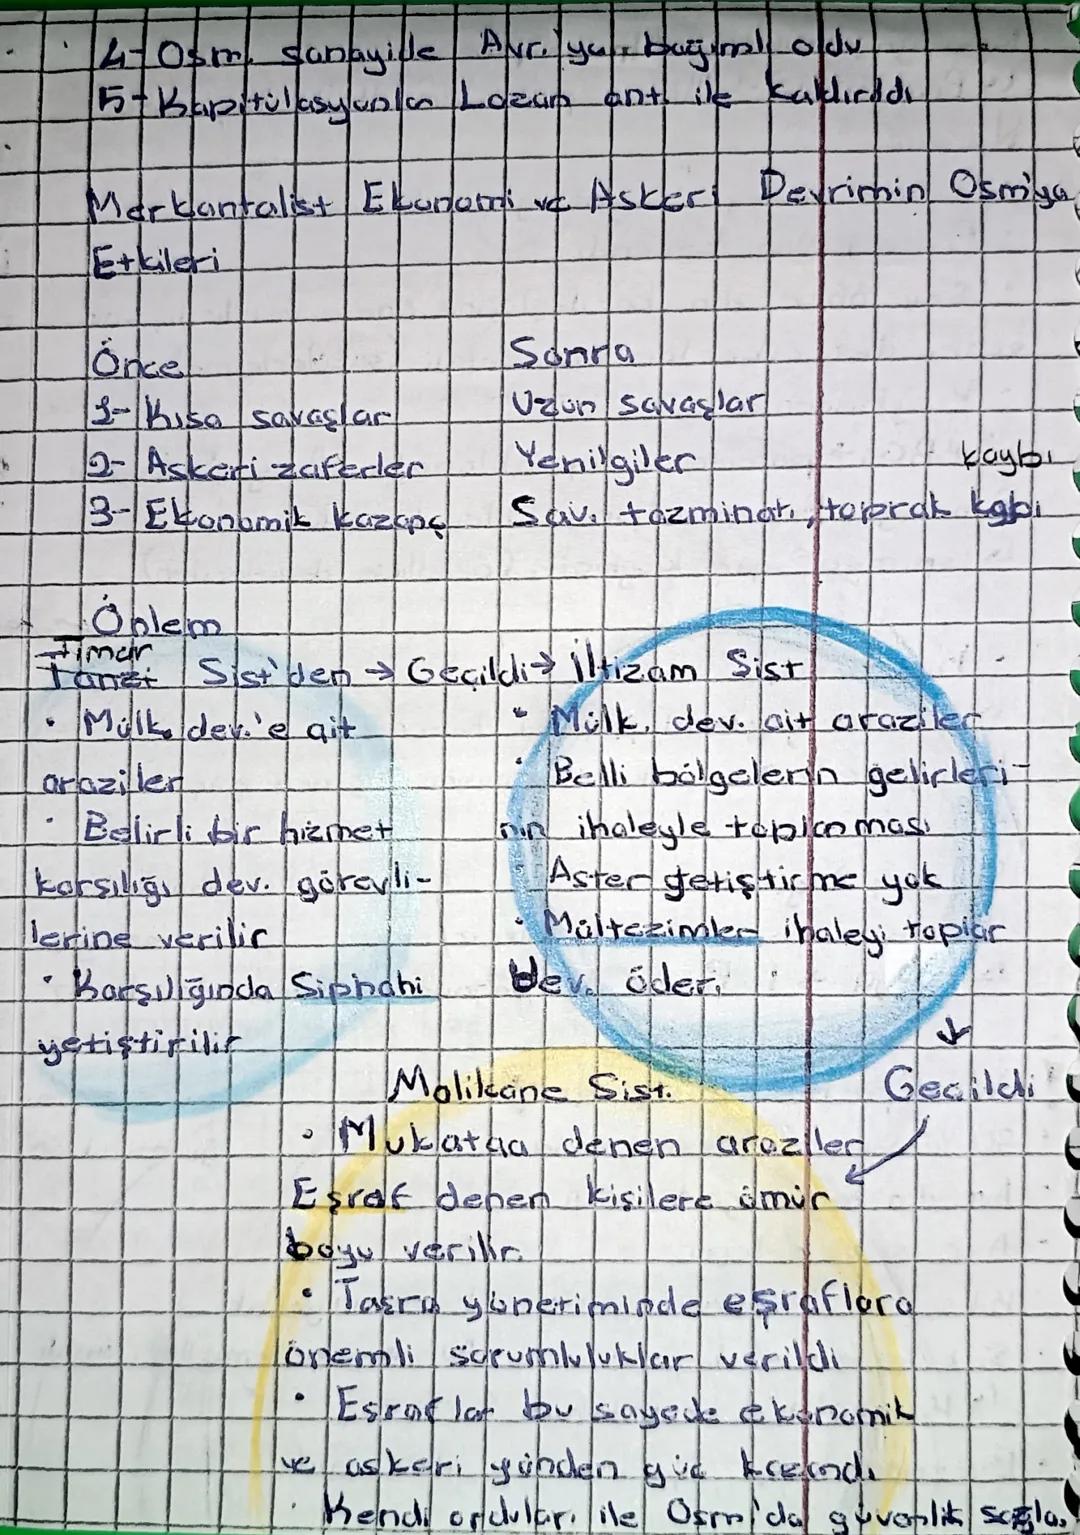 4- Osm. sanayide Avr.'ya bağımlı oldu
5- Kapitülasyonlar Lozan ant. ile kaldırıldı
Merkantalist Ekonomi ve Askeri Devrimin Osm'ya
Etkileri
Önce Sonra
1- Kısa savaşlar Uzun savaşlar
2- Askeri zaferler Yenilgiler kaybı
3- Ekonomik kazanç Sav. tazminatı, toprak kabı
Önlem
Timar
Sist'den → Geçildi → İltizam Sist
• Mülk. dev.'e ait • Mülk. dev. ait araziler
araziler • Belli bölgelerin gelirleri-
• Belirli bir hizmet nin ihaleyle toplanması
karşılığı dev. görevli- • Asker yetiştirme yok
lerine verilir • Mültezimler ihaleyi toplar
• Karşılığında Siphahi dev. öder.
yetiştirilir
Malikane Sist. Geçildi
• Mukataa denen araziler
Eşraf denen kişilere ömür
boyu verilir.
• Taşra yönetiminde eşraflara
önemli sorumluluklar verildi
• Eşraflar bu sayede ekonomik
ve askeri yönden güç kazandı
• Kendi orduları ile Osm'da güvenlik sağla.